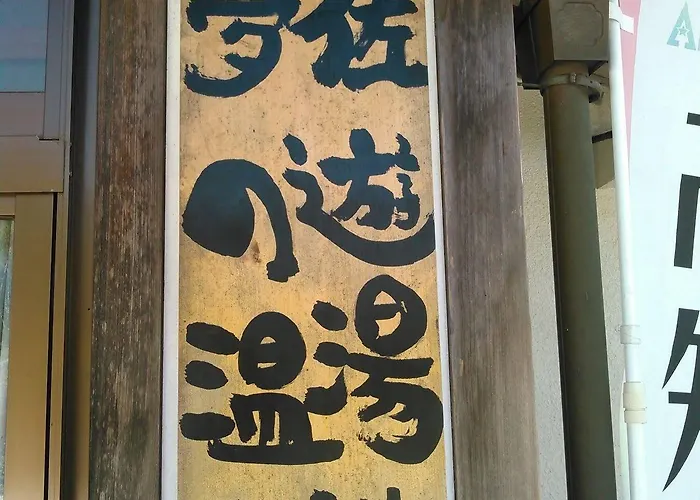 佐遊湯
夢の温